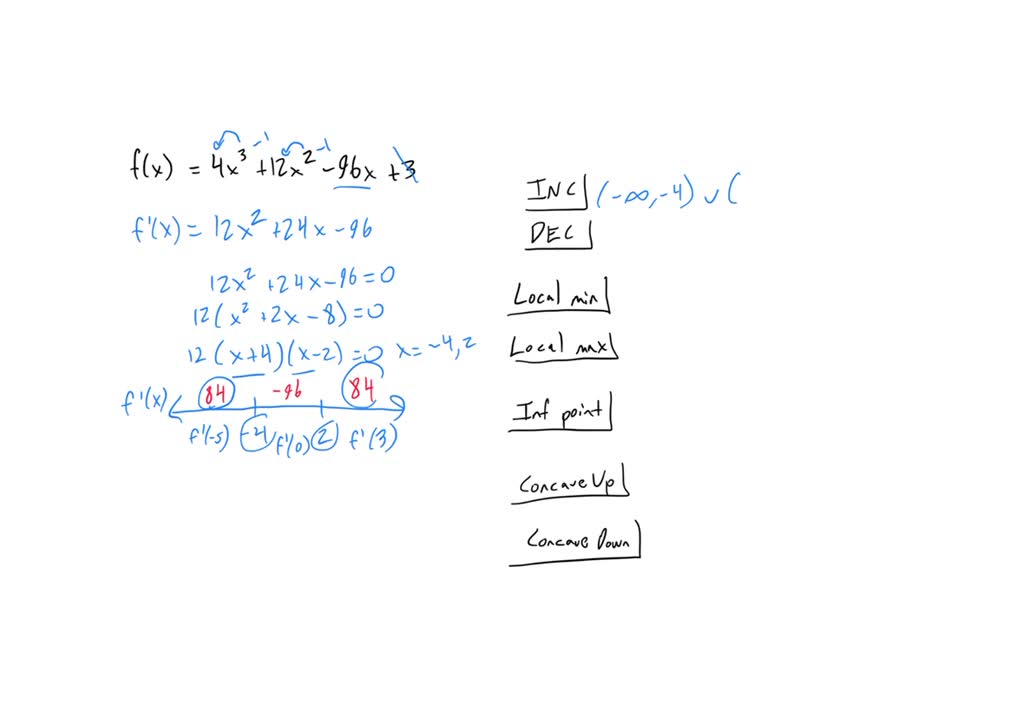 -1 -1
f(x) = 4x³ +12x² -96x +3
f'(x) = 12x² +24x -96
12x² +24x -96 = 0
12(x² +2x -8) = 0
12(x+4)(x-2) = 0 x = -4, 2
84 -96 84
f'(x)
f'(-5) -4 f'(0) 2 f'(3)
INC (-∞, -4) ∪ (
DEC
Local min
Local max
Inf point
Concave Up
Concave Down